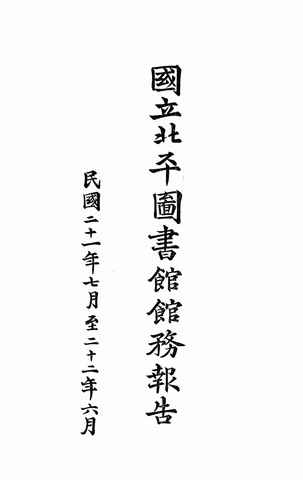 國立北平圖書館館務報告
民國二十一年七月至二十二年六月